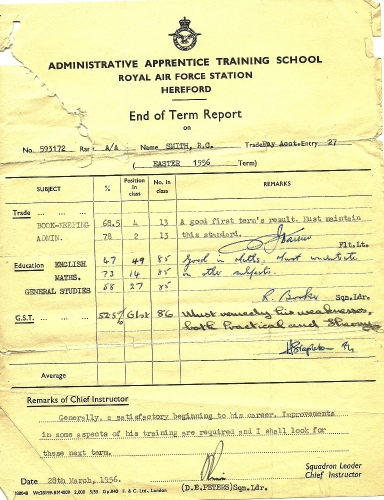 ADMINISTRATIVE APPRENTICE TRAINING SCHOOL
ROYAL AIR FORCE STATION
HEREFORD
End of Term Report
on
No. 593172 Rank A/A Name SMITH, R.C. Trade Pay Acct. Entry 27
( EASTER 1956 Term)
SUBJECT % Position in class No. in class REMARKS
Trade ... ... ...
BOOK-KEEPING 68.5 4 13 A good first term's result. Must maintain
ADMIN. 78 2 13 this standard.
Flt.Lt.
Education ENGLISH 47 49 85 Good in Maths. Must concentrate
MATHS. 73 14 85 in other subjects.
GENERAL STUDIES 58 27 85
Sqn.Ldr.
G.S.T. ... ... ... 52.5% 61st 86 Must remedy his weaknesses,
both Practical and Theory
Average
Remarks of Chief Instructor
Generally, a satisfactory beginning to his career. Improvements
in some aspects of his training are required and I shall look for
these next term.
Date 28th March, 1956.
(D.E. PETERS) Sqn.Ldr.
Squadron Leader
Chief Instructor
2,000 5/55 Gp.840 F. & C. Ltd., London